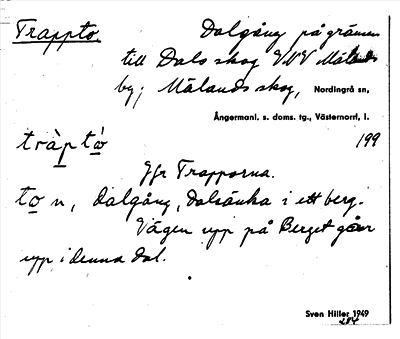 Trappto. Dalgång på gränsen
till Dals skog VNV Mälands
by; Mälands skog, Nordingrå sn,
Ångermanl. s. doms. tg., Västernorrl. l.
tràp tó 199
Jfr Trapporna.
to n, dalgång, dalsänka i ett berg.
Vägen upp på Berget går
upp i denna dal.
Sven Hiller 1949
284